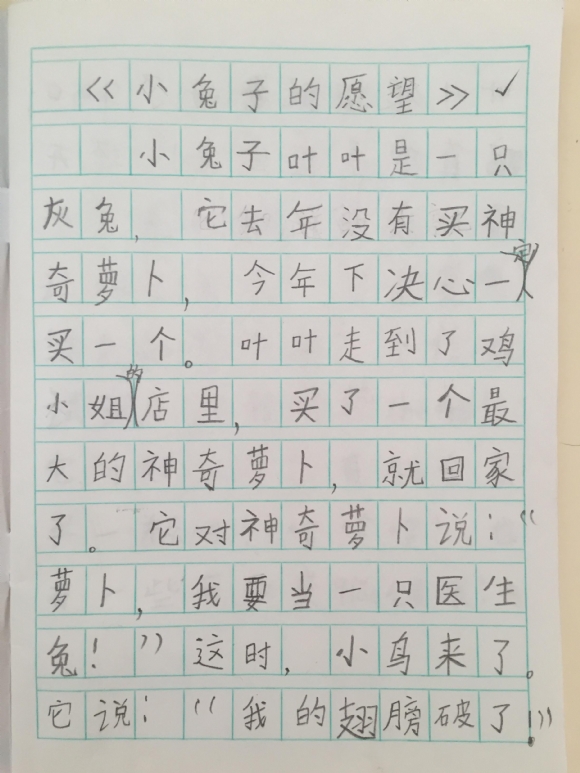 《小兔子的愿望》✓
小兔子叶叶是一只
灰兔，它去年没有买神
奇萝卜，今年下决心一定
买一个。叶叶走到了鸡
小姐的店里，买了一个最
大的神奇萝卜，就回家
了。它对神奇萝卜说：“
萝卜，我要当一只医生
兔！”这时，小鸟来了。
它说：“我的翅膀破了！”